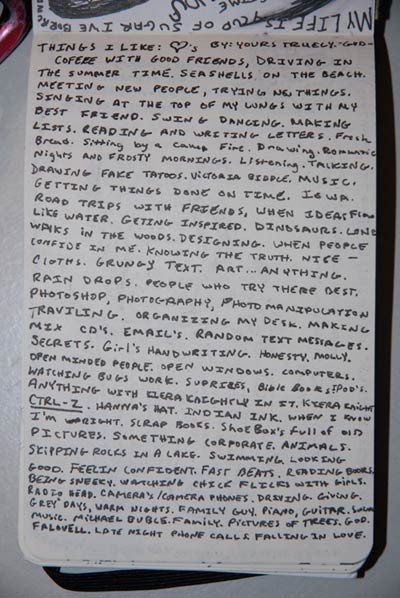 MY LIFE IS
CUP OF SUGAR I'VE BOR
THINGS I LIKE: ♡'s BY: YOURS TRUELY. GOD-
COFEEE WITH GOOD FRIENDS, DRIVING IN
THE SUMMER TIME. SEASHELLS. ON THE BEACH.
MEETING NEW PEOPLE, TRYING NEW THINGS.
SINGING AT THE TOP OF MY LUNGS WITH MY
BEST FRIEND. SWING DANCING. MAKING
LISTS. READING AND WRITING LETTERS. Fresh
Bread. Sitting by a Camp Fire. Drawing. Romantic
Nights and FROSTY MORNINGS. LISTENING. TALKING.
DRAWING FAKE TATOOS. VICTORIA BIDDLE. MUSIC.
GETTING THINGS DONE ON TIME. IOWA.
ROAD TRIPS WITH FRIENDS, WHEN IDEAS FLOW
LIKE WATER. GETING INSPIRED. DINOSAURS. LONG
WALKS IN THE WOODS. DESIGNING. WHEN PEOPLE
CONFIDE IN ME. KNOWING THE TRUTH. NICE —
CLOTHS. GRUNGY TEXT. ART... ANYTHING.
RAIN DROPS. PEOPLE WHO TRY THERE BEST.
PHOTOSHOP, PHOTOGRAPHY, PHOTO MANIPULATION
TRAVILING. ORGANIZING MY DESK. MAKING
MIX CD'S. EMAIL'S. RANDOM TEXT MESSAGES.
SECRETS. Girl's HANDWRITING. HONESTY. MOLLY.
OPEN MINDED PEOPLE. OPEN WINDOWS. COMPUTERS.
WATCHING BUGS WORK. SUPRISES, Bible Books. IPOD'S.
ANYTHING WITH KIERA KNIGHTLY IN IT. KIERA KNIGHT
CTRL-Z. HANNA'S HAT. INDIAN INK. WHEN I KNOW
I'M RIGHT. SCRAP BOOKS. SHOEBOX'S FULL OF OLD
PICTURES. SOMETHING CORPORATE. ANIMALS.
SKIPPING ROCKS IN A LAKE. SWIMMING. LOOKING
GOOD. FEELIN CONFIDENT. FAST BEATS. READING BOOKS.
BEING SNEEKY. WATCHING CHICK FLICKS WITH GIRLS.
RADIO HEAD. CAMERA'S/CAMERA PHONES. DRIVING. GIVING.
GREY DAYS, WARM NIGHTS. FAMILY GUY, PIANO, GUITAR.
MUSIC. MICHAEL BUBLE. FAMILY. PICTURES OF TREES. GOD.
FALOVELL. LATE NIGHT PHONE CALLS. FALLING IN LOVE.